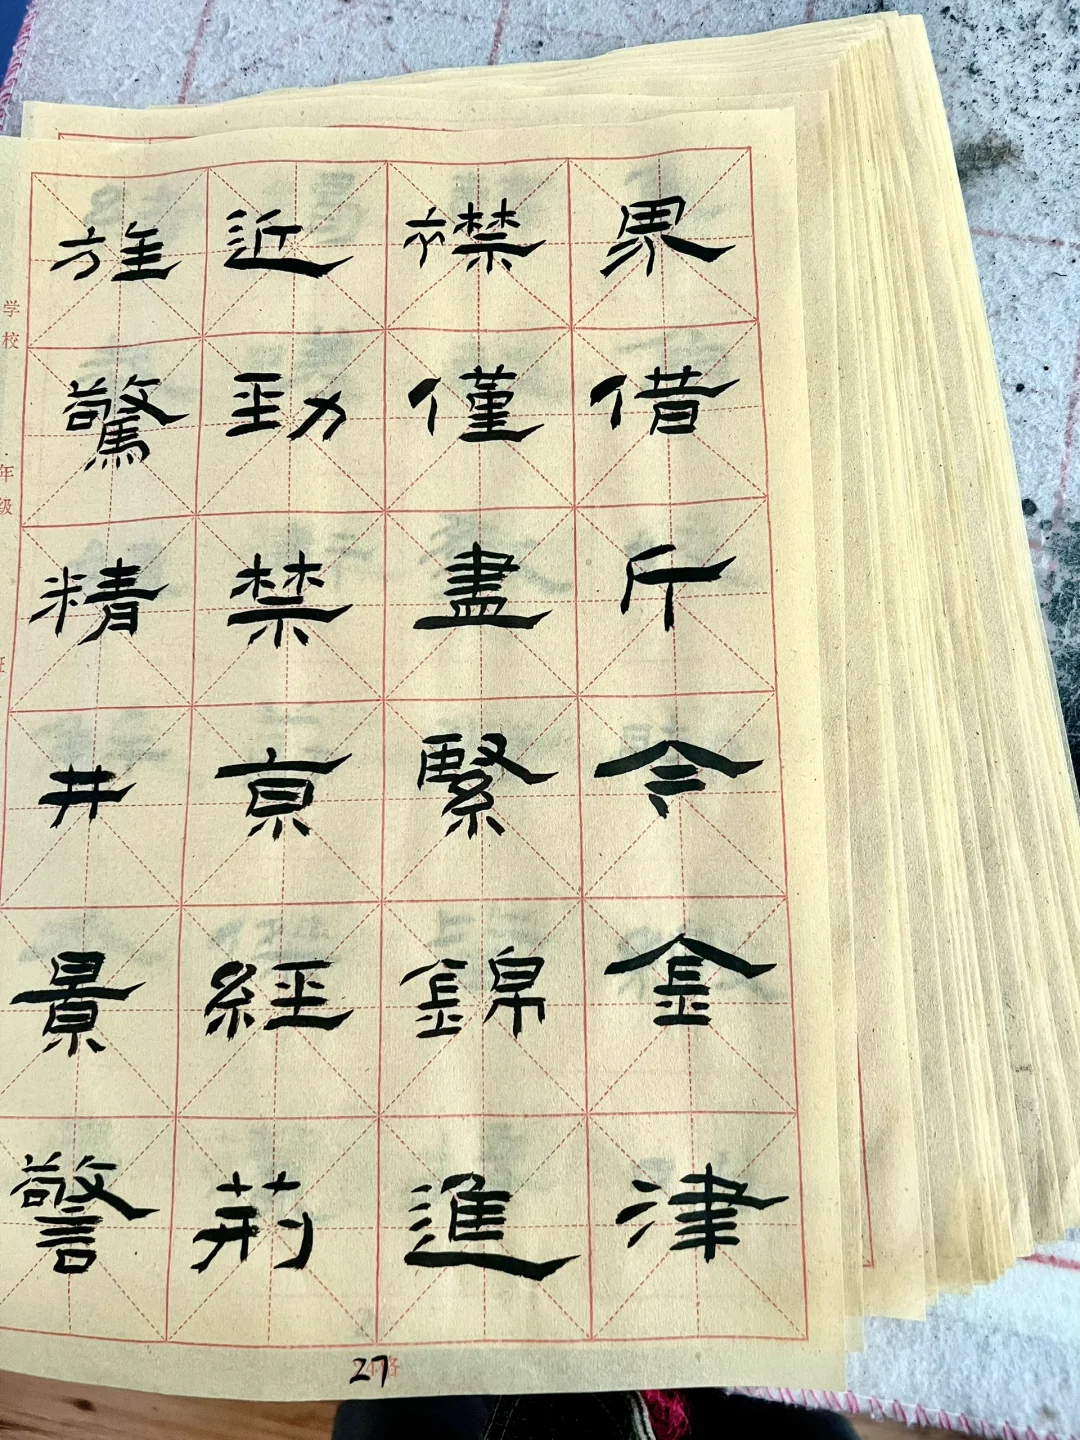 界借斤今金津
襟僅盡緊錦進
近勁禁京經荊
旌驚精井景警
学校
年级
班
27